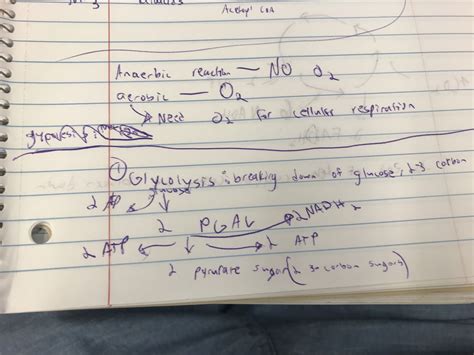 Acetyl CoA
Anaerbic reaction — NO O2
aerobic — O2
Need O2 for cellular respiration
① Glycolysis: breaking down of glucose, 2 3 carbon
glucose
2 ATP
2 PGAL → 2 NADH2
2 ATP ← → 2 ATP
2 pyruvate sugar (2 3 carbon sugars)